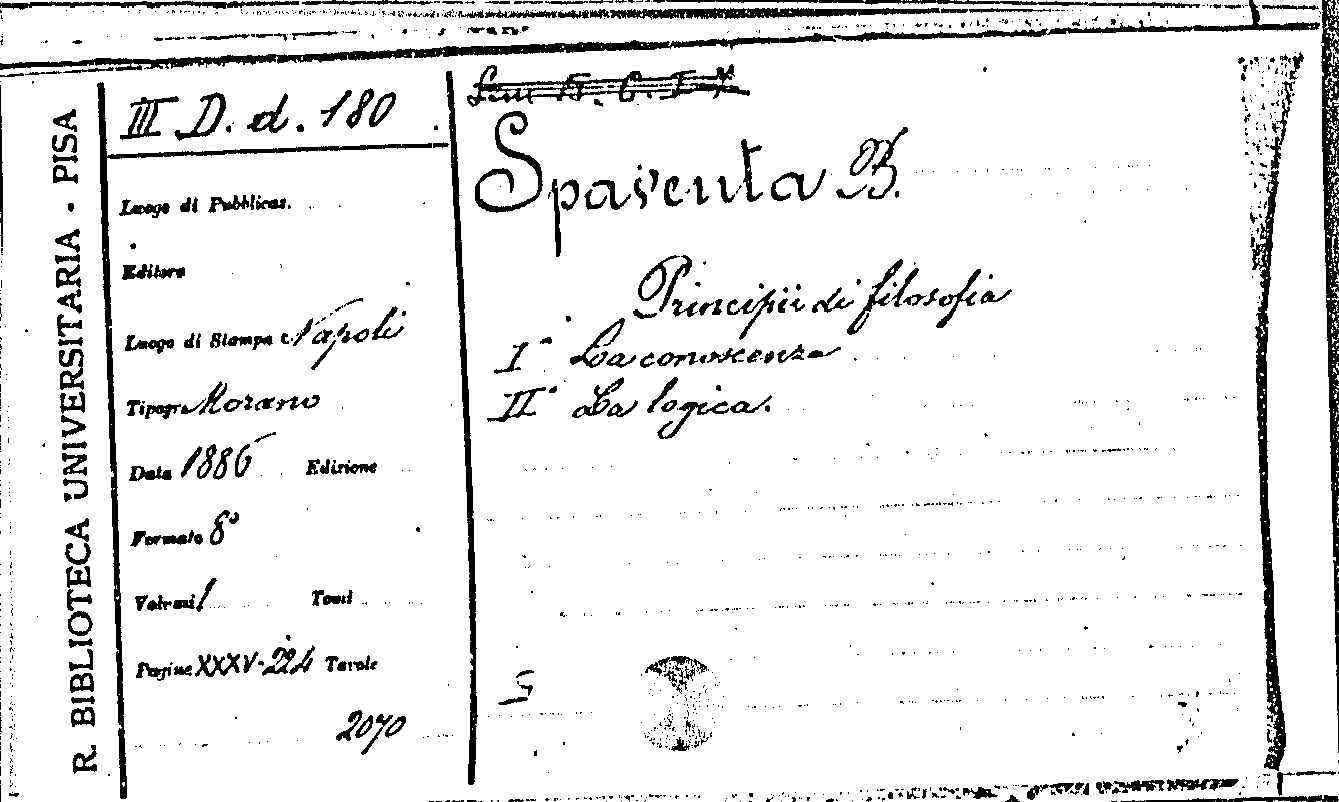 R. BIBLIOTECA UNIVERSITARIA - PISA
III D. d. 180
Luogo di Pubblicaz.
Editore
Luogo di Stampa Napoli
Tipogr. Morano
Data 1886 Edizione
Formato 8°
Volumi 1 Tomi
Pagine XXXV-224 Tavole
2070
Spaventa B.
Principii di filosofia
I° La conoscenza
II° La logica.